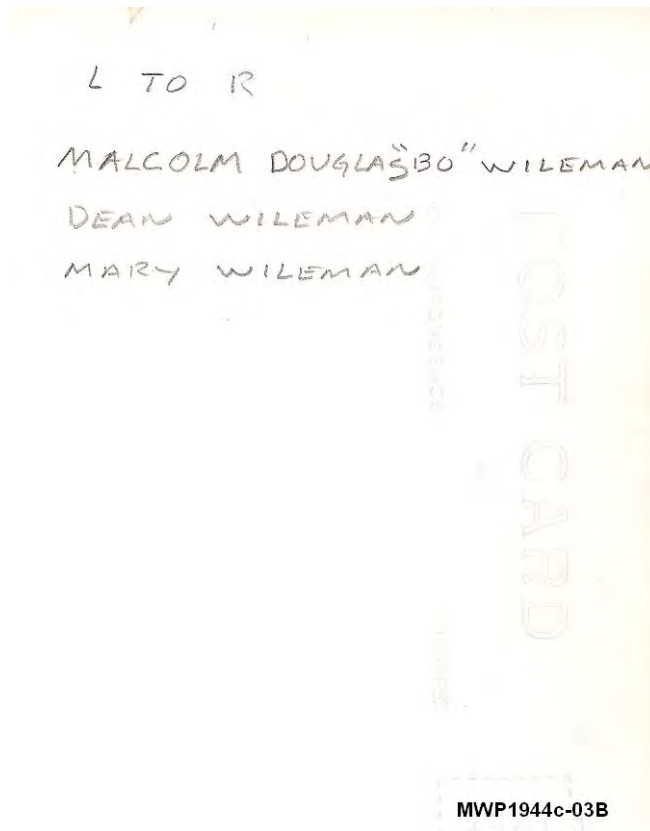 L TO R
MALCOLM DOUGLAS "BO" WILEMAN
DEAN WILEMAN
MARY WILEMAN
POST CARD
MWP1944c-03B